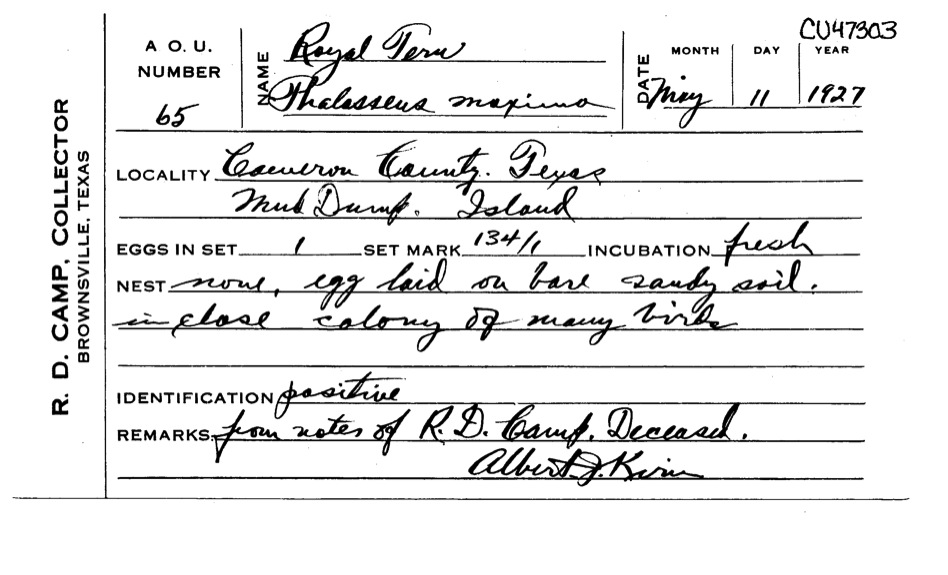 CU47303
R. D. CAMP, COLLECTOR
BROWNSVILLE, TEXAS
A O. U.
NUMBER
65
NAME
Royal Tern
Thalasseus maxima
DATE
MONTH DAY YEAR
May 11 1927
LOCALITY Cameron County. Texas
Mud Dump. Island
EGGS IN SET 1 SET MARK 134/1 INCUBATION fresh
NEST none, egg laid on bare sandy soil.
in close colony of many birds
IDENTIFICATION positive
REMARKS. from notes of R. D. Camp. Deceased.
Albert J. Kirn